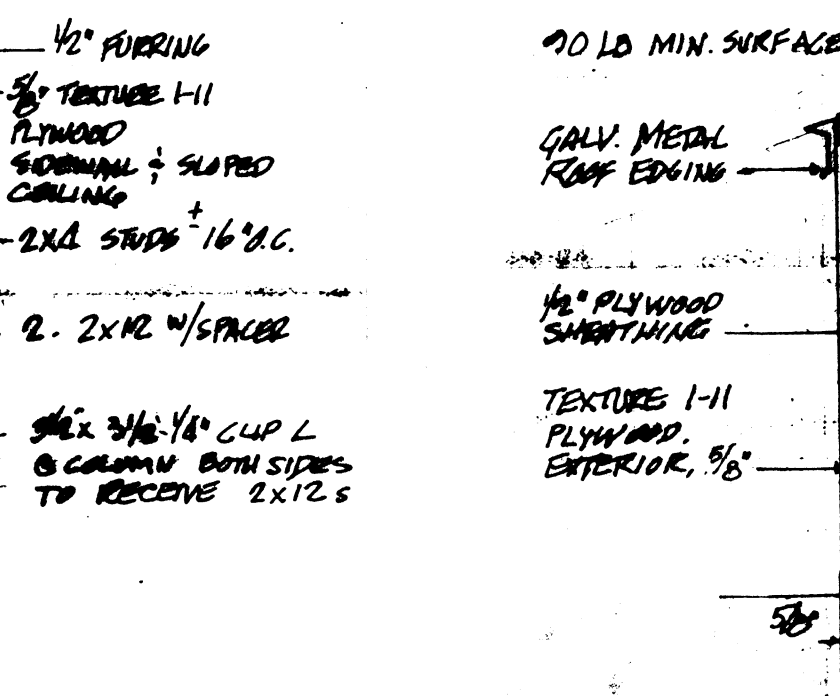 1/2" FURRING
5/8" TEXTURE 1-11
PLYWOOD
SIDEWALL & SLOPED
CEILING
2X4 STUDS ± 16" O.C.
2 - 2X12 W/SPACER
3 1/2" X 3 1/2" - 1/4" CLIP L
@ COLUMN BOTH SIDES
TO RECEIVE 2X12S
90 LB MIN. SURFACE
GALV. METAL
ROOF EDGING
1/2" PLYWOOD
SHEATHING
TEXTURE 1-11
PLYWOOD.
EXTERIOR, 5/8"
5/8"